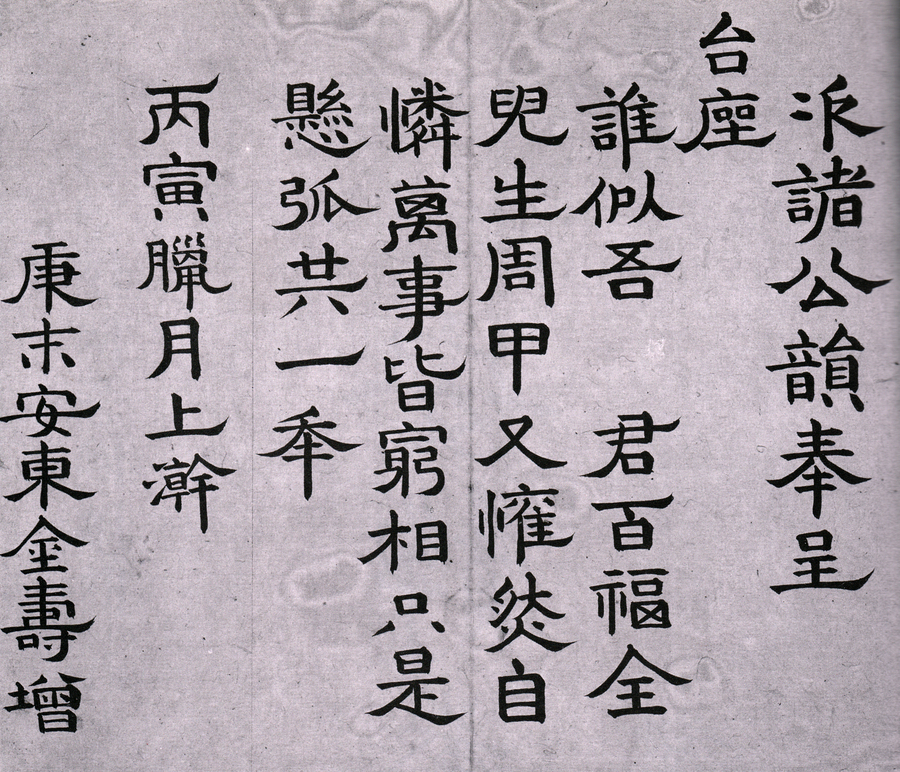 次諸公韻奉呈
台座
誰似吾 君百福全
兒生周甲又懽然自
憐萬事皆窮相只是
懸弧共一秊
丙寅臘月上澣
庚末安東金壽增